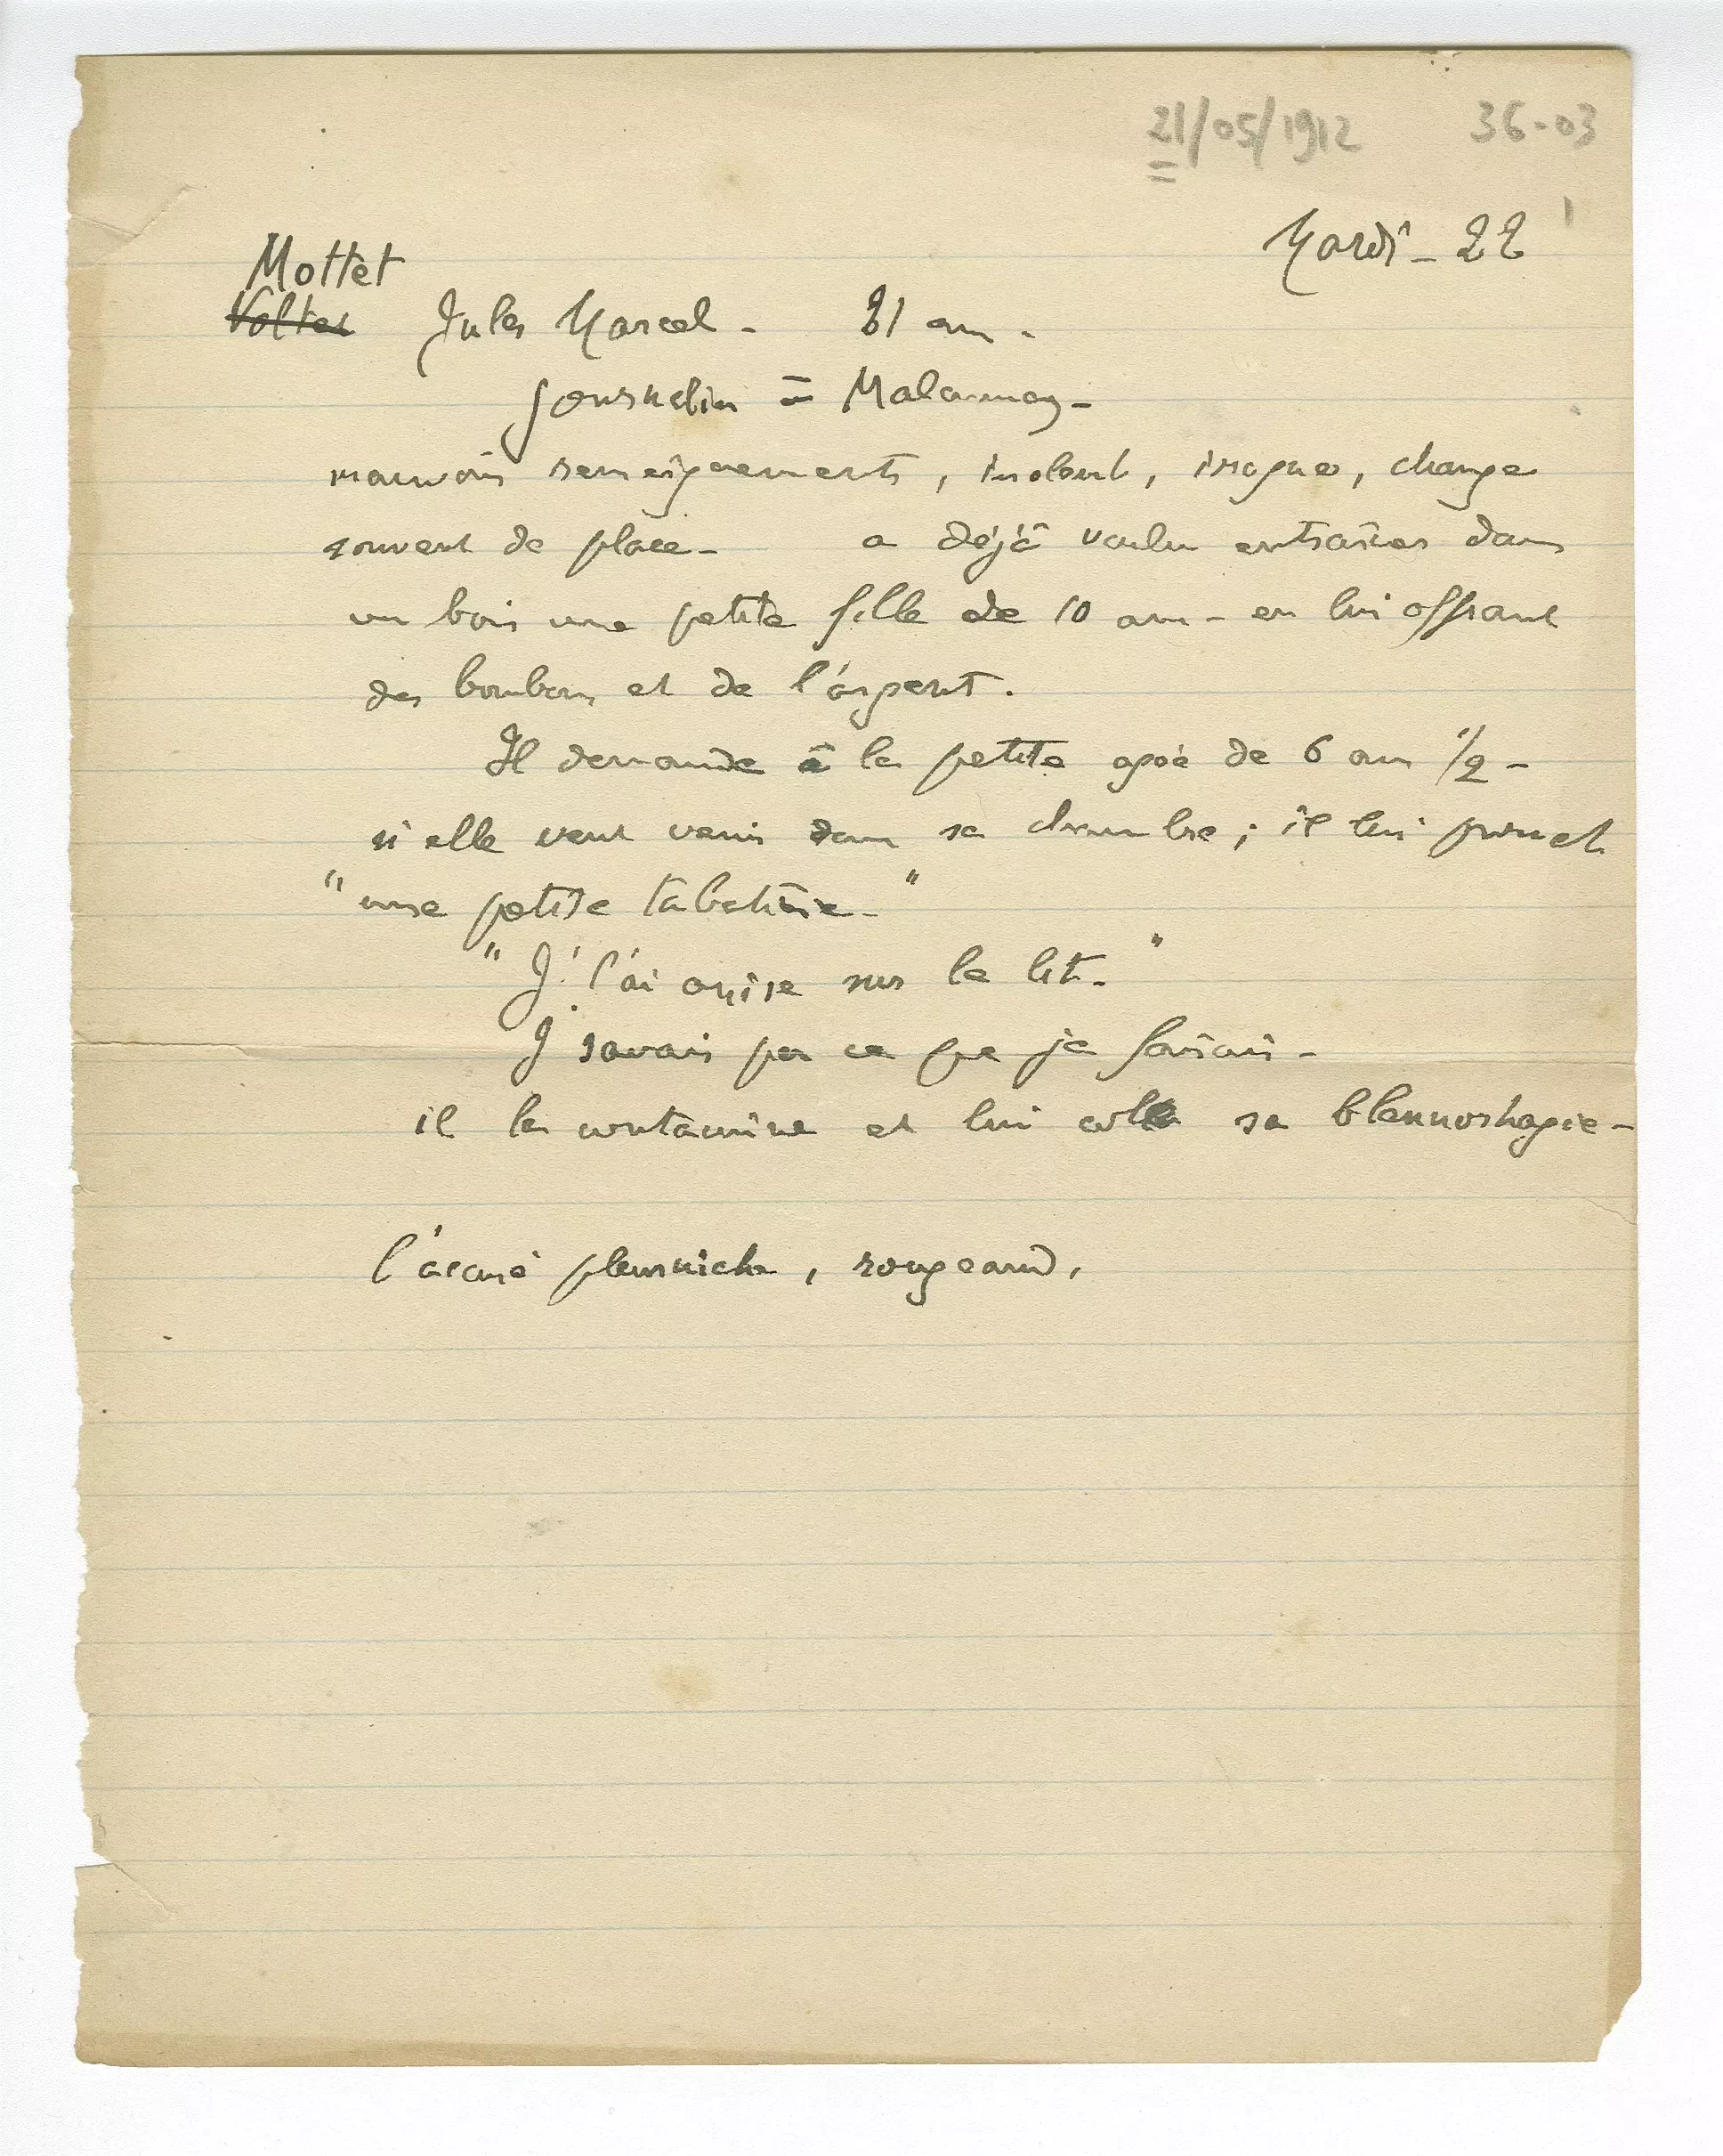 21/05/1912 36-03
1
Mardi - 22
Mottet
Volter Jules Marcel - 21 ans.
journalier = Malaunay -
mauvais renseignements, insolent, ivrogne, change
souvent de place - a déjà voulu entraîner dans
un bois une petite fille de 10 ans - en lui offrant
des bonbons et de l'argent.
Il demande à la petite agée de 6 ans 1/2 -
si elle veut venir dans sa chambre ; il lui promet
"une petite tabatière - "
"J' l'ai assise sur le lit. "
J' savais pas ce que je faisais -
il la contamine et lui colle sa blennorhagie -
l'accusé pleurniche, rougeaud,